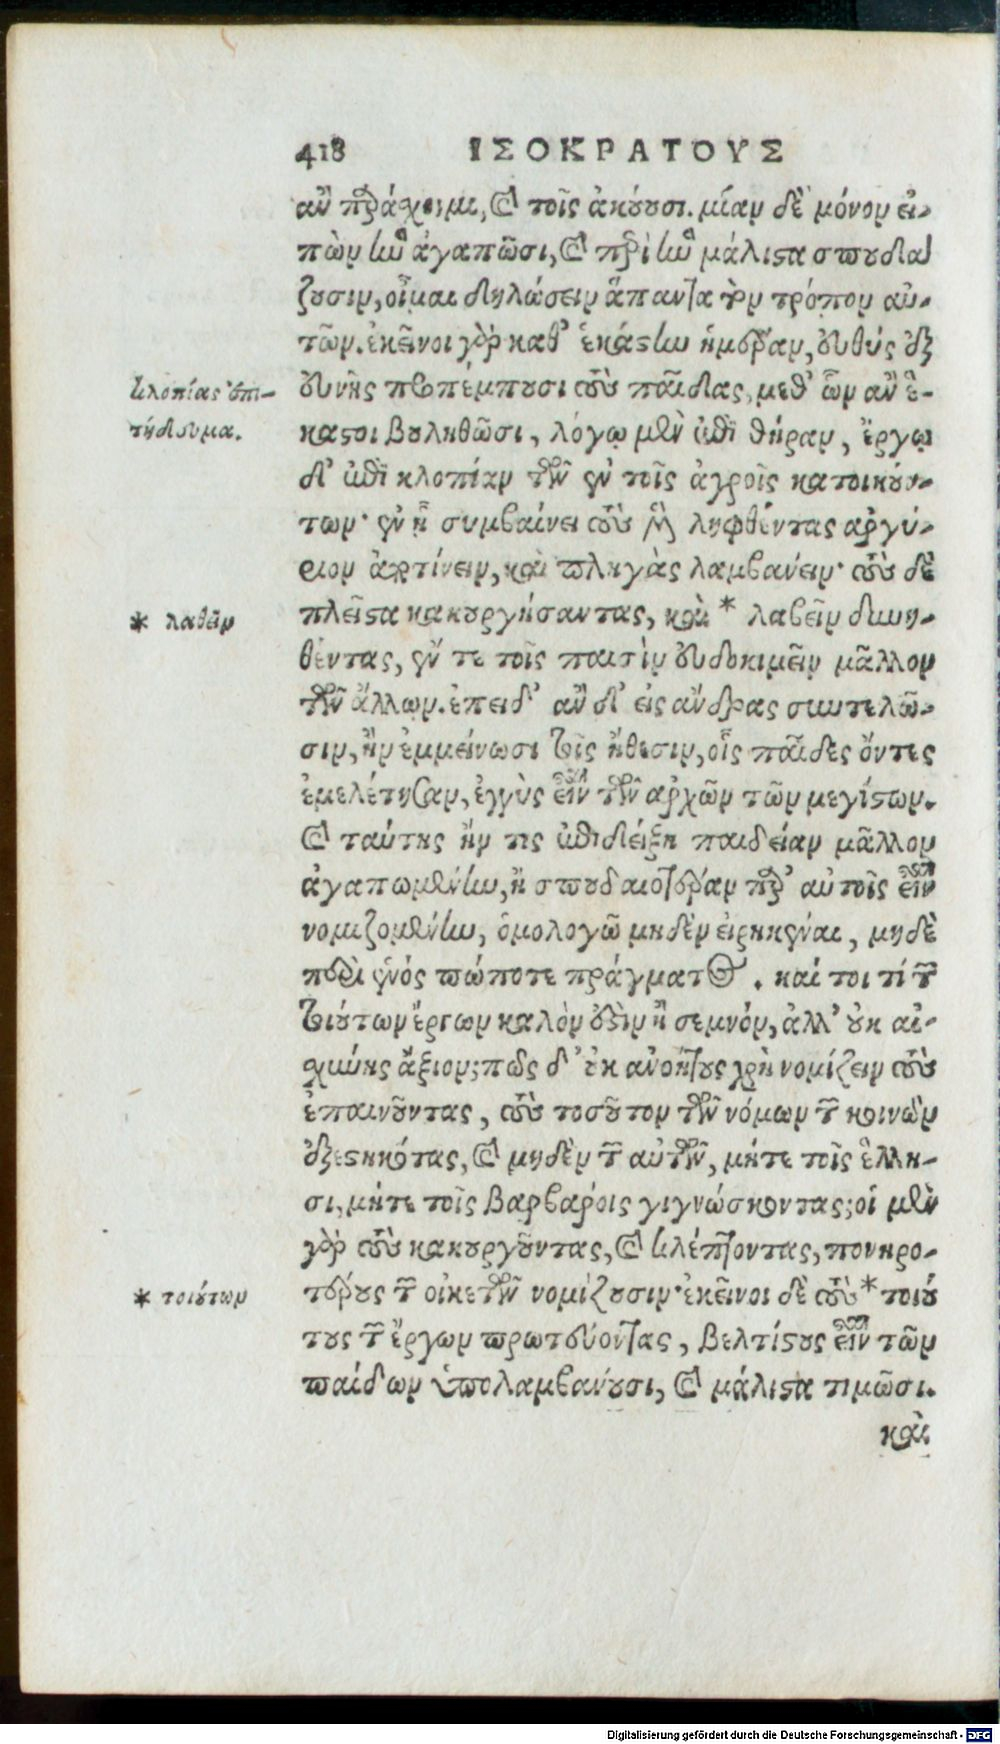 418 ΙΣΟΚΡΑΤΟΥΣ
ἂν παράσχοιμι, καὶ τοῖς ἀκούουσι. μίαν δὲ μόνον εἰ-
πὼν ἣν ἀγαπῶσι, καὶ περὶ ἣν μάλιστα σπουδά
ζουσιν, οἶμαι δηλώσειν ἅπαντα τὸν τρόπον αὐ-
τῶν. ἐκεῖνοι γὰρ καθ' ἑκάστην ἡμέραν, εὐθὺς ἐξ
κλοπίας ἐπι-
τήδευμα.
εὐνῆς προπέμπουσι τοὺς παῖδας, μεθ' ὧν ἂν ἕ-
καστοι βουληθῶσι, λόγῳ μὲν ἐπὶ θήραν, ἔργῳ
δ' ἐπὶ κλοπίαν τῶν ἐν τοῖς ἀγροῖς κατοικούν-
των· ἐν ᾗ συμβαίνει τοὺς μὲν ληφθέντας ἀργύ-
ριον ἀποτίνειν, καὶ πληγὰς λαμβάνειν· τοὺς δὲ
* λαθεῖν
πλεῖστα κακουργήσαντας, καὶ * λαβεῖν δυνη-
θέντας, ἔν τε τοῖς παισὶν εὐδοκιμεῖν μᾶλλον
τῶν ἄλλων. ἐπειδ' ἂν δ' εἰς ἄνδρας συντελῶ-
σιν, ἢν ἐμμείνωσι τοῖς ἤθεσιν, οἷς παῖδες ὄντες
ἐμελέτησαν, ἐγγὺς εἶναι τῶν ἀρχῶν τῶν μεγίστων.
καὶ ταύτης ἤν τις ἐπιδείξῃ παιδείαν μᾶλλον
ἀγαπωμένην, ἢ σπουδαιοτέραν παρ' αὐτοῖς εἶναι
νομιζομένην, ὁμολογῶ μηδὲν εἰρηκέναι, μηδὲ
περὶ ἑνός πώποτε πράγματος. καί τοι τί τῶν
τοιούτων ἔργων καλὸν ἐστὶν ἢ σεμνόν, ἀλλ' οὐκ αἰ-
σχύνης ἄξιον; πῶς δ' οὐκ ἀνοήτους χρὴ νομίζειν τοὺς
ἐπαινοῦντας, τοὺς τοσοῦτον τῶν νόμων τῶν κοινῶν
ἐξεστηκότας, καὶ μηδὲν τῶν αὐτῶν, μήτε τοῖς ἕλλη-
σι, μήτε τοῖς βαρβάροις γιγνώσκοντας; οἱ μὲν
γὰρ τοὺς κακουργοῦντας, καὶ κλέπτοντας, πονηρο-
* τοιούτων
τέρους τῶν οἰκετῶν νομίζουσιν· ἐκεῖνοι δὲ τοὺς * τοιού
τους τῶν ἔργων πρωτεύοντας, βελτίστους εἶναι τῶν
παίδων ὑπολαμβάνουσι, καὶ μάλιστα τιμῶσι.
καὶ
Digitalisierung gefördert durch die Deutsche Forschungsgemeinschaft - DFG